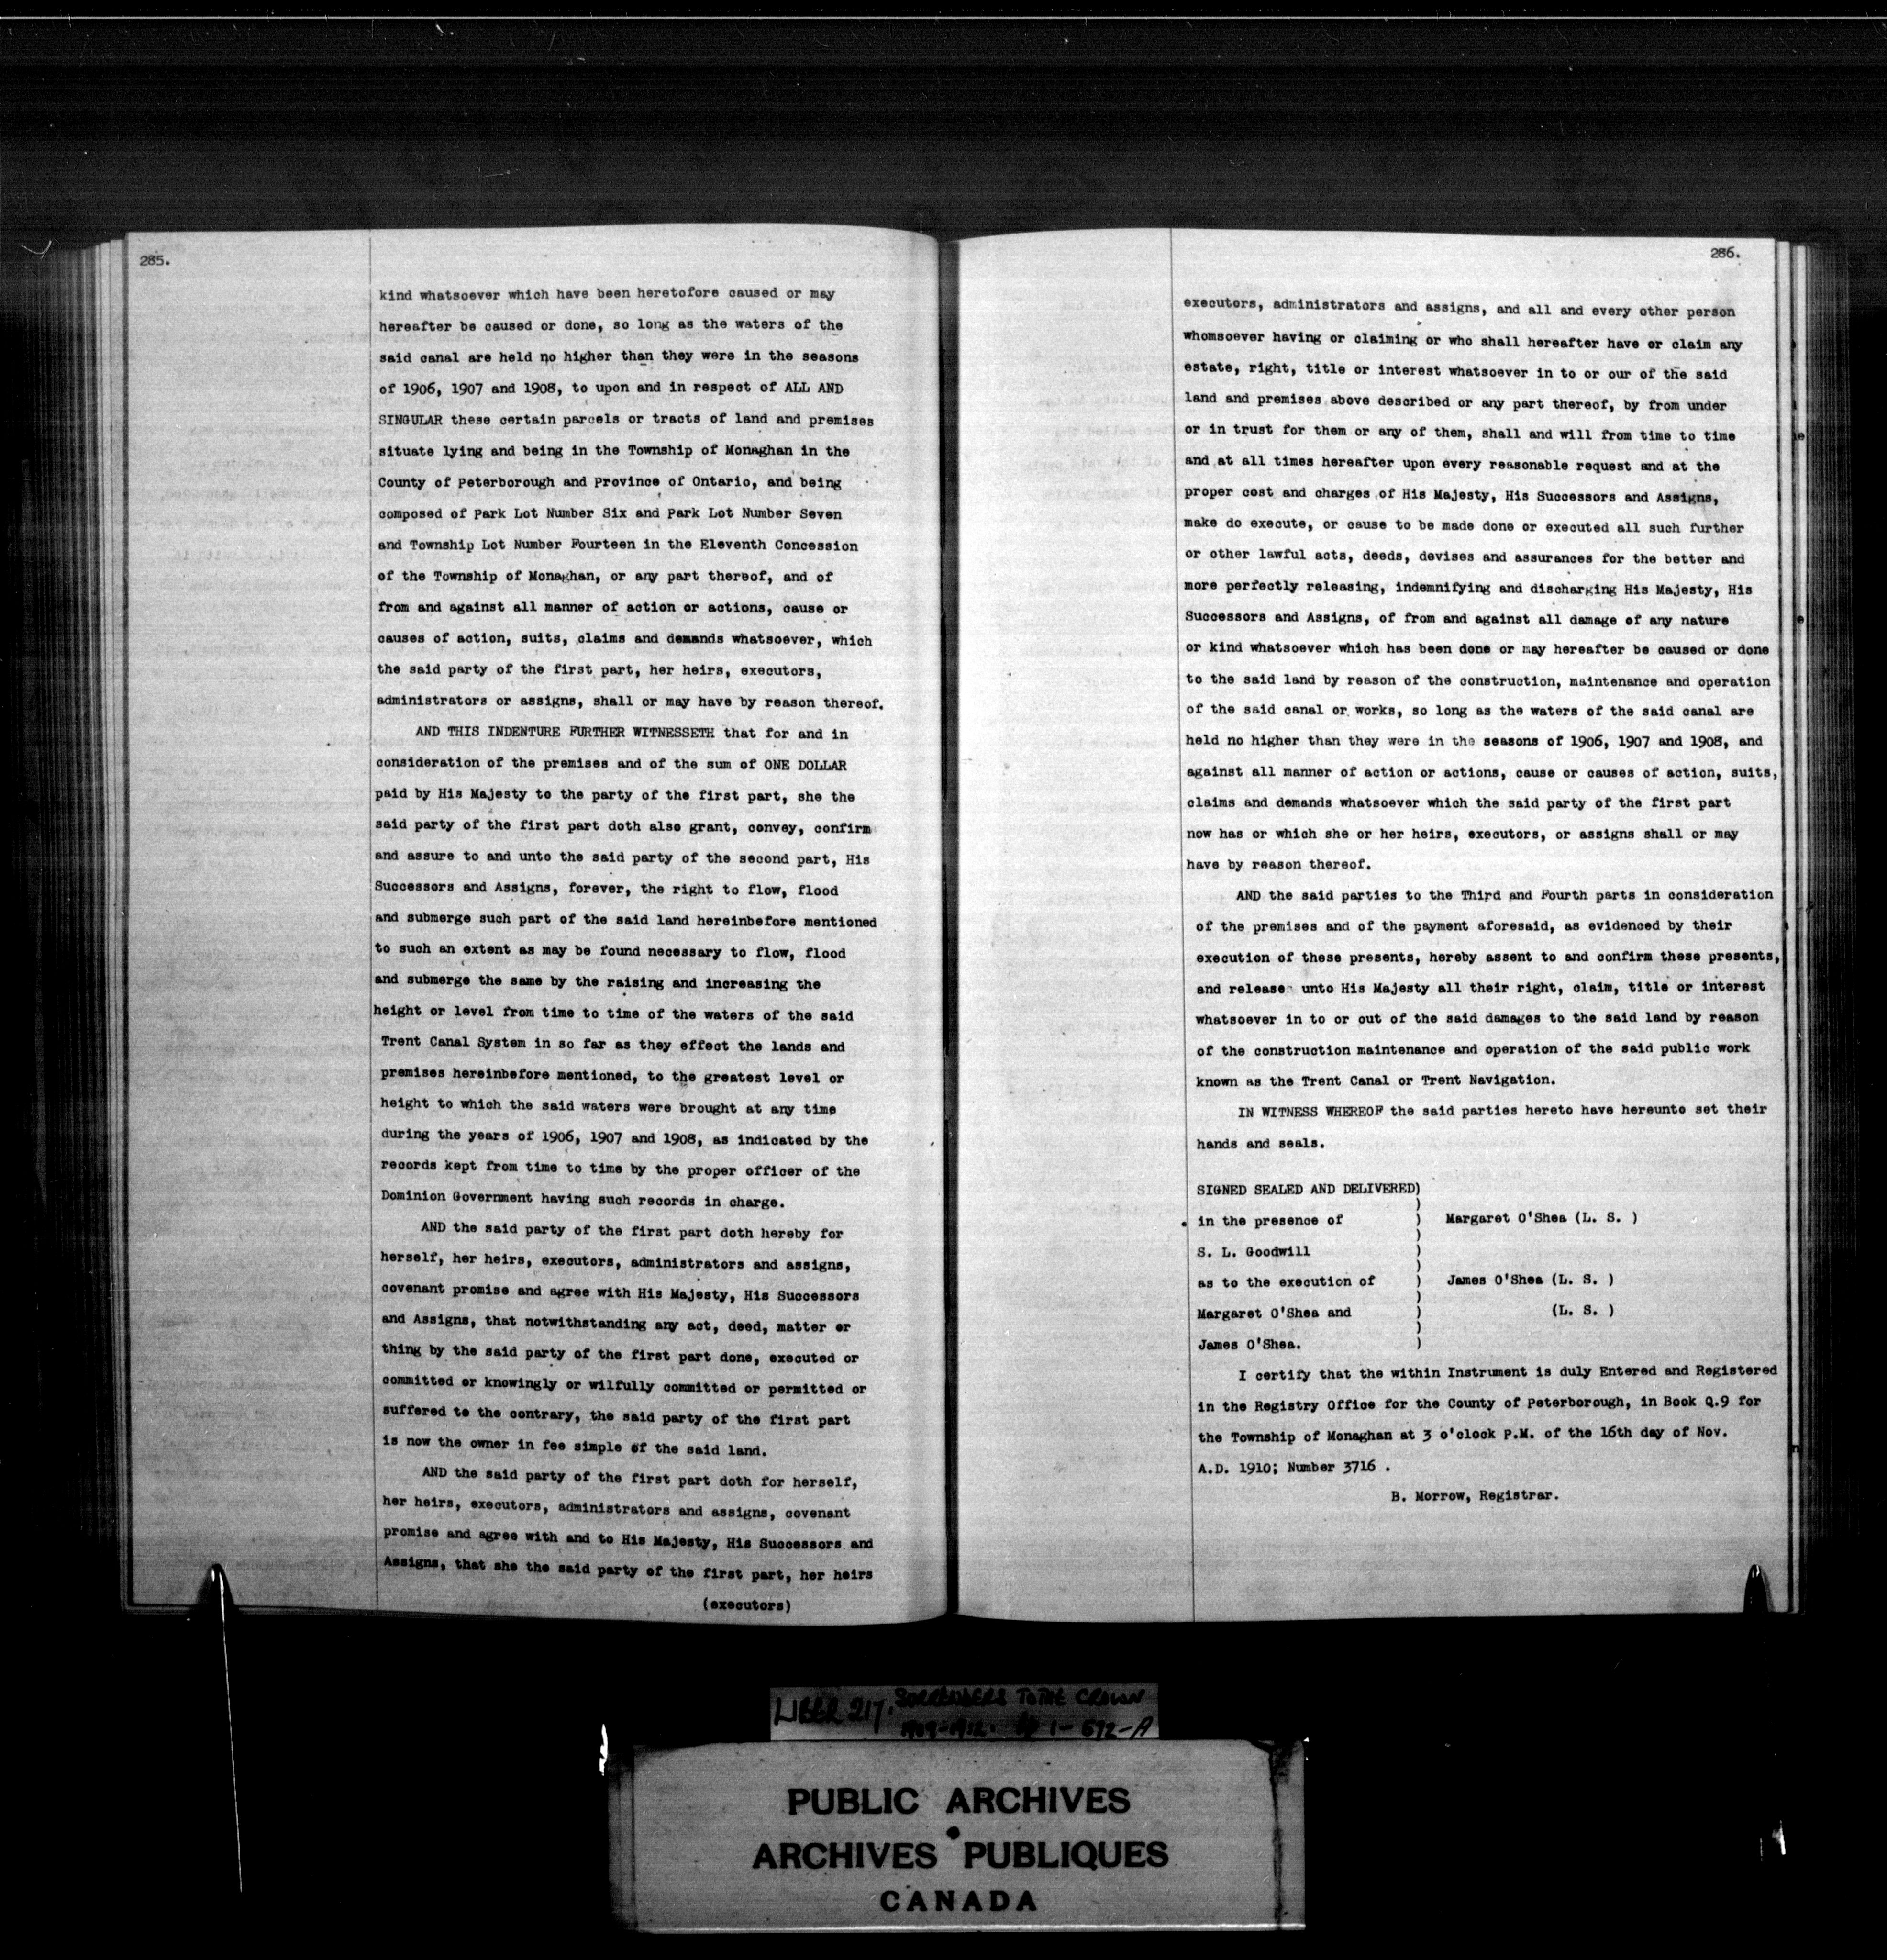 285.
kind whatsoever which have been heretofore caused or may
hereafter be caused or done, so long as the waters of the
said canal are held no higher than they were in the seasons
of 1906, 1907 and 1908, to upon and in respect of ALL AND
SINGULAR these certain parcels or tracts of land and premises
situate lying and being in the Township of Monaghan in the
County of Peterborough and Province of Ontario, and being
composed of Park Lot Number Six and Park Lot Number Seven
and Township Lot Number Fourteen in the Eleventh Concession
of the Township of Monaghan, or any part thereof, and of
from and against all manner of action or actions, cause or
causes of action, suits, claims and demands whatsoever, which
the said party of the first part, her heirs, executors,
administrators or assigns, shall or may have by reason thereof.
AND THIS INDENTURE FURTHER WITNESSETH that for and in
consideration of the premises and of the sum of ONE DOLLAR
paid by His Majesty to the party of the first part, she the
said party of the first part doth also grant, convey, confirm
and assure to and unto the said party of the second part, His
Successors and Assigns, forever, the right to flow, flood
and submerge such part of the said land hereinbefore mentioned
to such an extent as may be found necessary to flow, flood
and submerge the same by the raising and increasing the
height or level from time to time of the waters of the said
Trent Canal System in so far as they effect the lands and
premises hereinbefore mentioned, to the greatest level or
height to which the said waters were brought at any time
during the years of 1906, 1907 and 1908, as indicated by the
records kept from time to time by the proper officer of the
Dominion Government having such records in charge.
AND the said party of the first part doth hereby for
herself, her heirs, executors, administrators and assigns,
covenant promise and agree with His Majesty, His Successors
and Assigns, that notwithstanding any act, deed, matter or
thing by the said party of the first part done, executed or
committed or knowingly or wilfully committed or permitted or
suffered to the contrary, the said party of the first part
is now the owner in fee simple of the said land.
AND the said party of the first part doth for herself,
her heirs, executors, administrators and assigns, covenant
promise and agree with and to His Majesty, His Successors and
Assigns, that she the said party of the first part, her heirs
(executors)
286.
executors, administrators and assigns, and all and every other person
whomsoever having or claiming or who shall hereafter have or claim any
estate, right, title or interest whatsoever in to or our of the said
land and premises above described or any part thereof, by from under
or in trust for them or any of them, shall and will from time to time
and at all times hereafter upon every reasonable request and at the
proper cost and charges of His Majesty, His Successors and Assigns,
make do execute, or cause to be made done or executed all such further
or other lawful acts, deeds, devises and assurances for the better and
more perfectly releasing, indemnifying and discharging His Majesty, His
Successors and Assigns, of from and against all damage of any nature
or kind whatsoever which has been done or may hereafter be caused or done
to the said land by reason of the construction, maintenance and operation
of the said canal or works, so long as the waters of the said canal are
held no higher than they were in the seasons of 1906, 1907 and 1908, and
against all manner of action or actions, cause or causes of action, suits,
claims and demands whatsoever which the said party of the first part
now has or which she or her heirs, executors, or assigns shall or may
have by reason thereof.
AND the said parties to the Third and Fourth parts in consideration
of the premises and of the payment aforesaid, as evidenced by their
execution of these presents, hereby assent to and confirm these presents,
and release unto His Majesty all their right, claim, title or interest
whatsoever in to or out of the said damages to the said land by reason
of the construction maintenance and operation of the said public work
known as the Trent Canal or Trent Navigation.
IN WITNESS WHEREOF the said parties hereto have hereunto set their
hands and seals.
SIGNED SEALED AND DELIVERED)
)
in the presence of ) Margaret O'Shea (L. S. )
)
S. L. Goodwill )
)
as to the execution of ) James O'Shea (L. S. )
)
Margaret O'Shea and ) (L. S. )
)
James O'Shea. )
I certify that the within Instrument is duly Entered and Registered
in the Registry Office for the County of Peterborough, in Book Q.9 for
the Township of Monaghan at 3 o'clock P.M. of the 16th day of Nov.
A.D. 1910; Number 3716 .
B. Morrow, Registrar.
LIBER 217. SURRENDERS TO THE CROWN
1909-1912. pp 1-592-A
PUBLIC ARCHIVES
ARCHIVES PUBLIQUES
CANADA